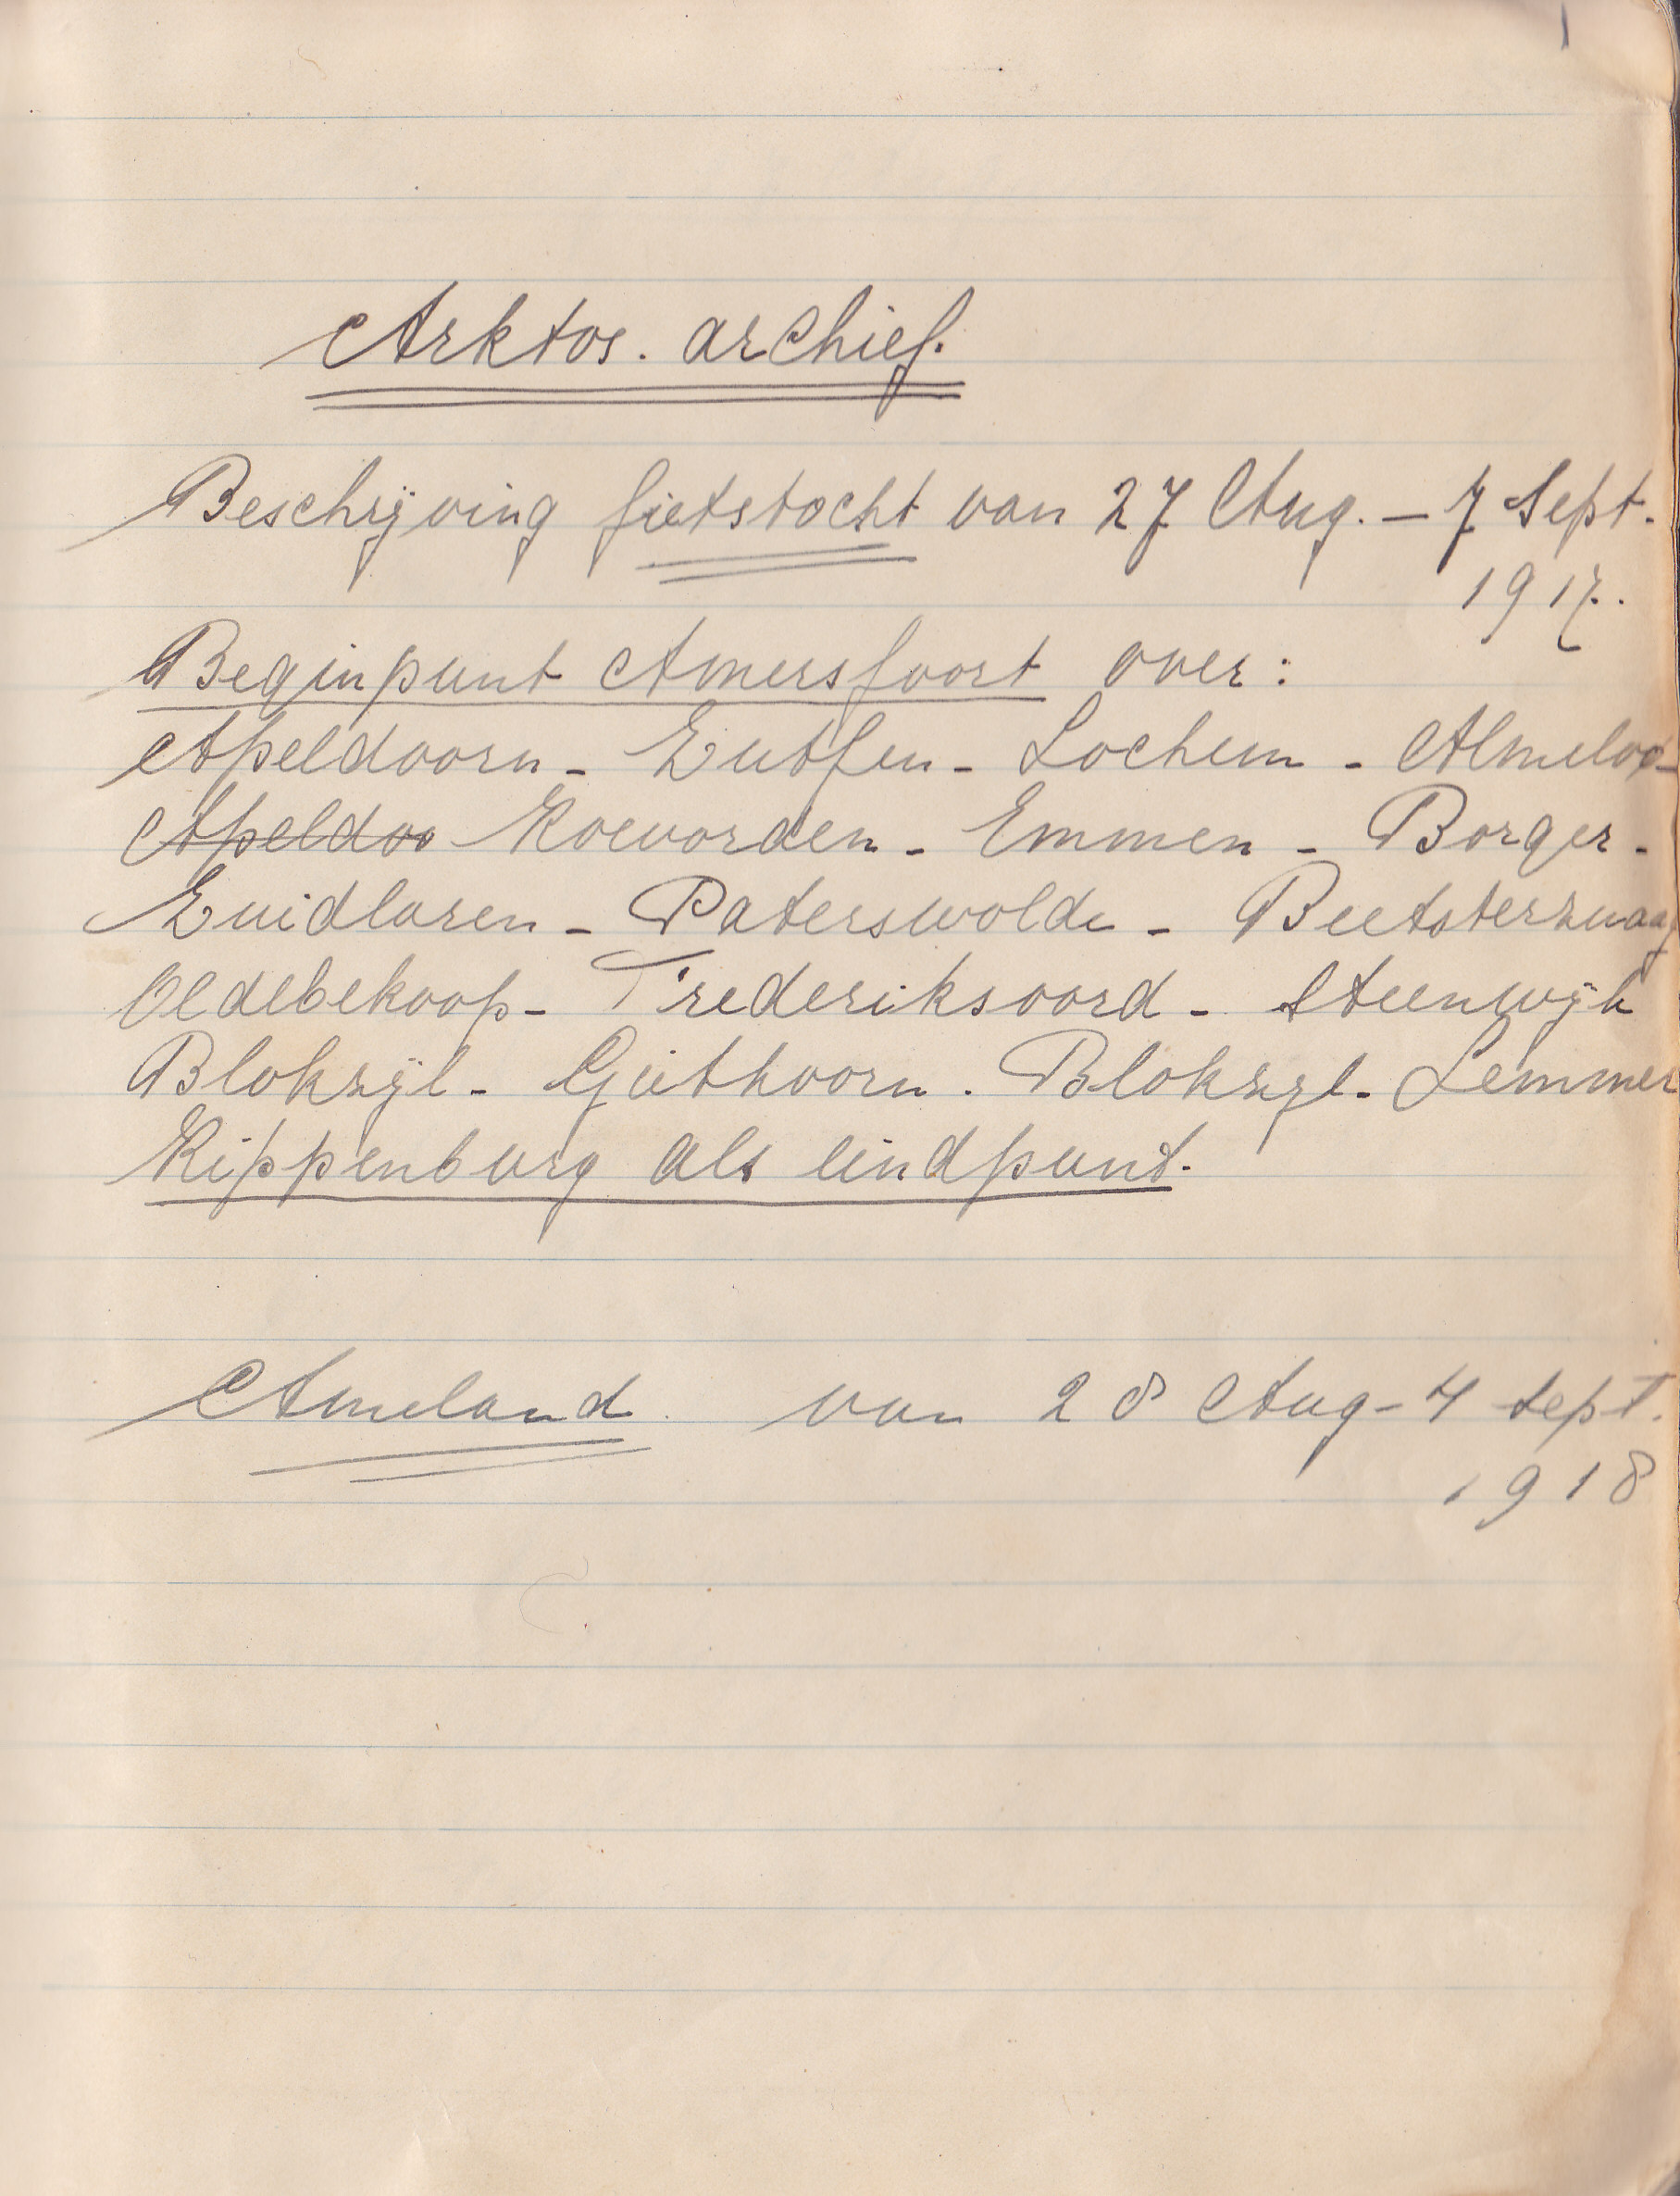 Arktos. archief.
Beschrijving fietstocht van 27 Aug. – 7 Sept.
1917.
Beginpunt Amersfoort over:
Apeldoorn - Zutfen - Lochem - Almeloo -
Apeldoo Koevorden - Emmen - Borger -
Zuidlaren - Paterswolde - Beetsterzwaag
Oldebekoop - Frederiksoord - Steenwijk
Blokzijl - Giethoorn. Blokzyl - Lemmer
Rippenburg als eindpunt.
Ameland. van 28 Aug - 4 Sept.
1918